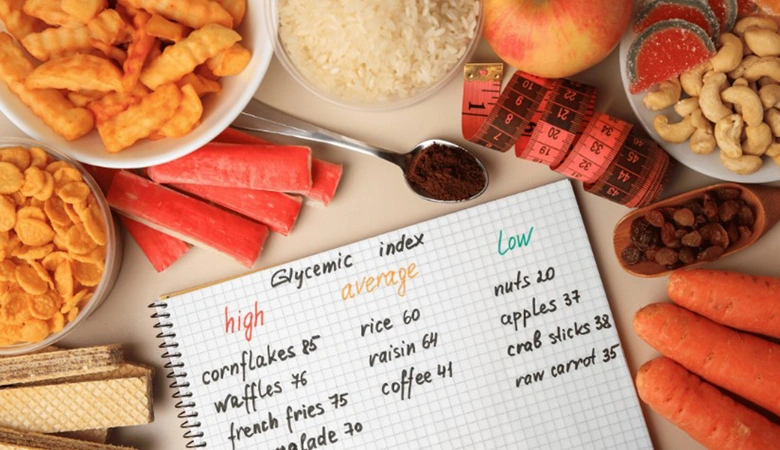 Glycemic index
high
cornflakes 85
waffles 76
french fries 75
70
average
rice 60
raisin 64
coffee 41
Low
nuts 20
apples 37
crab sticks 38
raw carrot 35